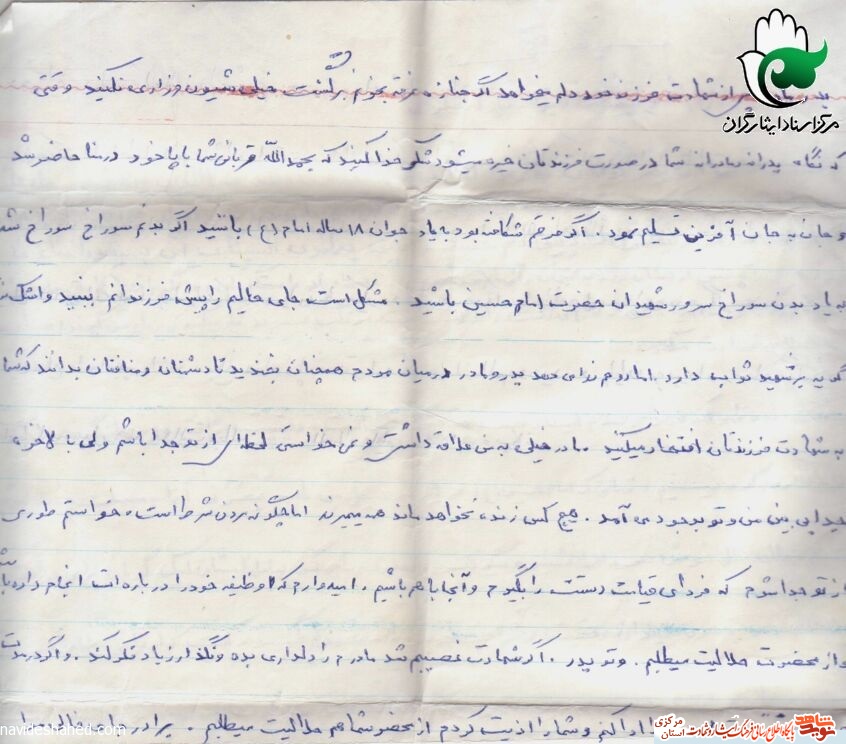 مرکز اسناد ایثارگران
از شهادت فرزند خود دلم میخواهد اگر جنازه غرقه بخونم برگشت خیلی شیون و زاری نکنید وقتی
که نگاه پدرانه مادرانه شما در صورت فرزندتان خیره میشود شکر خدا کنید که بحمدالله قربانی شما با پا خود در منا حاضر شد
و جان به جان آفرین تسلیم نمود. اگر فرقم شکافته بود به یاد جوان ۱۸ ساله امام (ع) باشید اگر بدنم سوراخ سوراخ شد
به یاد بدن سوراخ سرور شهیدان حضرت امام حسین باشید. مشکل است جای خالیم را پیش فرزندانم ببینید و اشک
گریه بر شهید ثواب دارد. اما پدر و مادر در میان مردم همچنان بخندید تا دشمنان و منافقان بدانند که شما
به شهادت فرزندتان افتخار میکنید. مادر خیلی به من علاقه داشتی و نمی خواستی لحظه‌ای از تو جدا باشم ولی بالاخره
جدایی بین من و تو بوجود می آمد. هیچ کس زنده نخواهد ماند همه میمیرند اما چگونه مردن شرط است، خواستم طوری
از تو جدا شوم که فردای قیامت دستت را بگیرم و آنجا با هم باشیم. امیدوارم که وظیفه خود را درباره‌ات انجام داده
و از محضرت حلالیت میطلبم. و تو پدر. اگر شهادت نصیبم شد مادرم را دلداری بده و نگذار زیاد نکند. و اگر
ادا کنم و شما را اذیت کردم از محضر شما هم حلالیت میطلبم. برادر
نوید شاهد
پایگاه اطلاع رسانی فرهنگ ایثار و شهادت
استان مرکزی
navideshahed.com